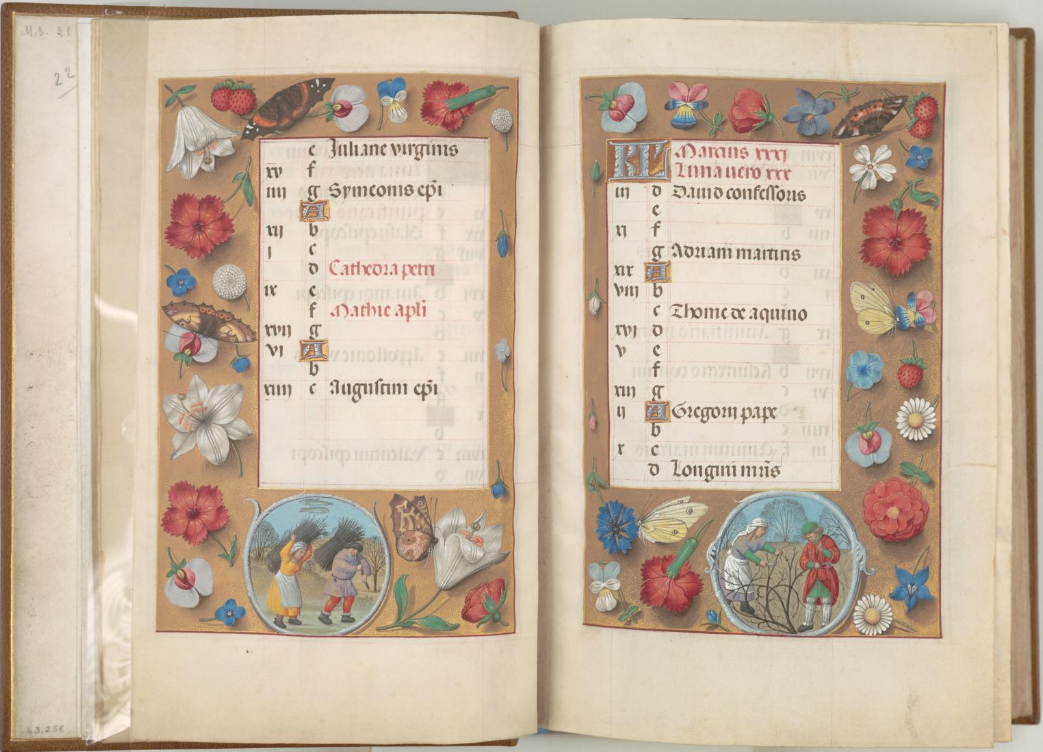 M.S. 21
22
c Juliane virginis
xv f
iiii g Symeonis ep̄i
A
xii b
i c
d Cathedra petri
ix e
f Mathie apl̄i
xvii g
vi A
b
xiiii c Augustini ep̄i
63.256
KL Marcius xxxi
Luna uero xxx
iii d Dauid confessoris
e
xi f
g Adriani martiris
xix A
viii b
c Thome de aquino
xvi d
v e
f
xiii g
ii A Gregorii pape
b
x c
d Longini mr̄is